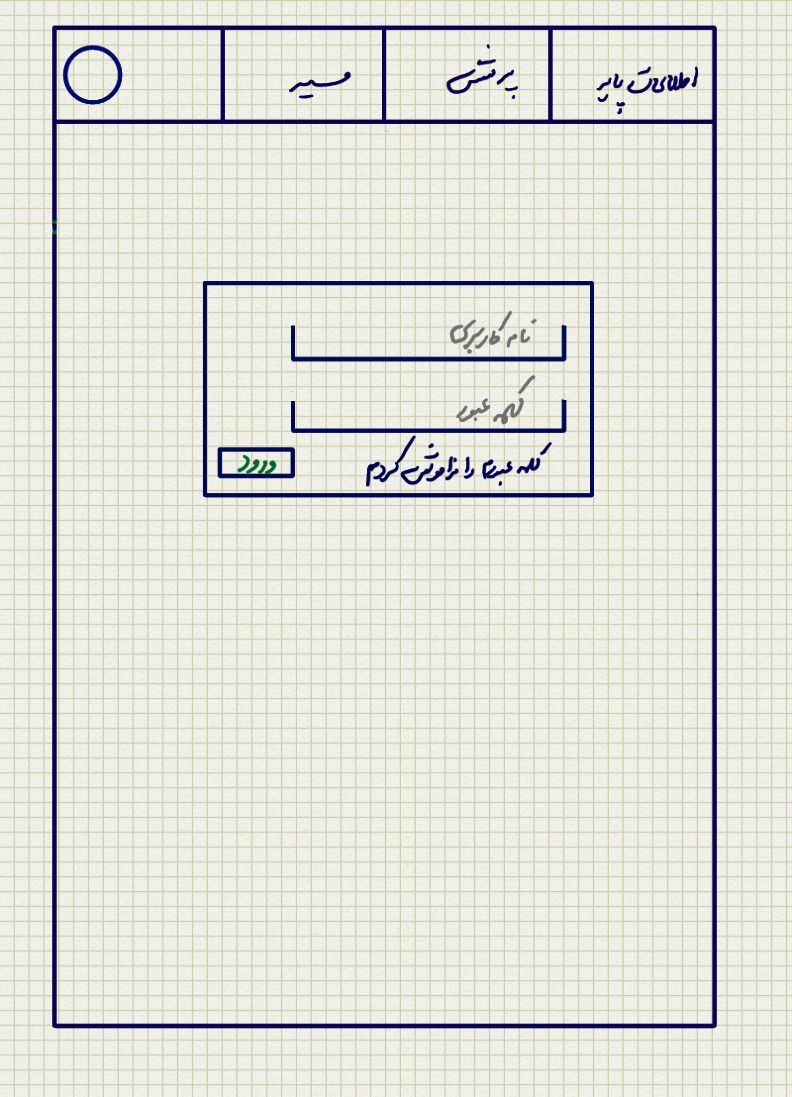 اطلاعات پایه
پرسش
مسیر
نام کاربری
کلمه عبور
کلمه عبورم را فراموش کردم
ورود